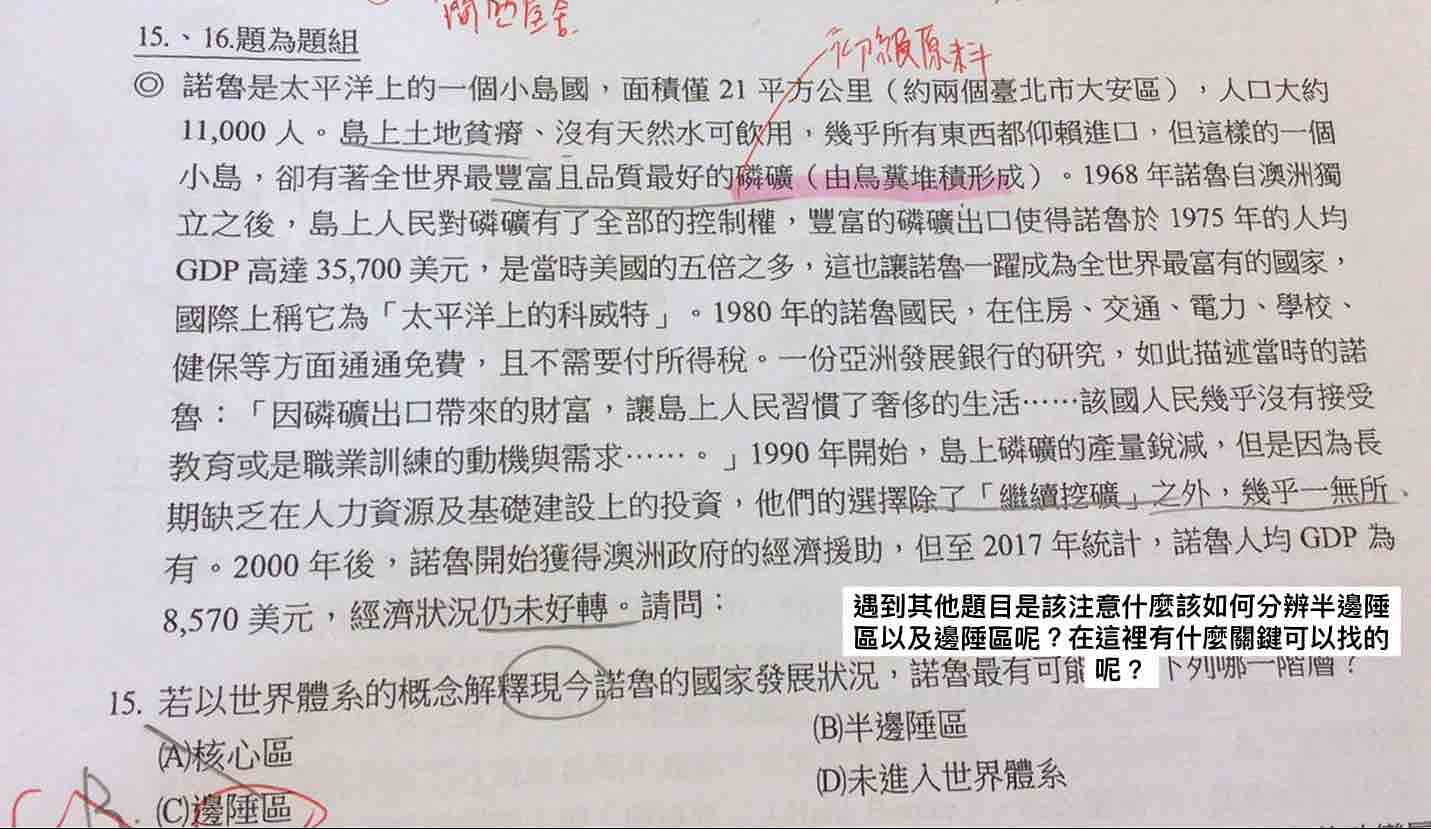 簡陋宿舍
15.、16.題為題組
初級原料
◎ 諾魯是太平洋上的一個小島國，面積僅 21 平方公里（約兩個臺北市大安區），人口大約
11,000 人。島上土地貧瘠、沒有天然水可飲用，幾乎所有東西都仰賴進口，但這樣的一個
小島，卻有著全世界最豐富且品質最好的磷礦（由鳥糞堆積形成）。1968 年諾魯自澳洲獨
立之後，島上人民對磷礦有了全部的控制權，豐富的磷礦出口使得諾魯於 1975 年的人均
GDP 高達 35,700 美元，是當時美國的五倍之多，這也讓諾魯一躍成為全世界最富有的國家，
國際上稱它為「太平洋上的科威特」。1980 年的諾魯國民，在住房、交通、電力、學校、
健保等方面通通免費，且不需要付所得稅。一份亞洲發展銀行的研究，如此描述當時的諾
魯：「因磷礦出口帶來的財富，讓島上人民習慣了奢侈的生活……該國人民幾乎沒有接受
教育或是職業訓練的動機與需求……。」1990 年開始，島上磷礦的產量銳減，但是因為長
期缺乏在人力資源及基礎建設上的投資，他們的選擇除了「繼續挖礦」之外，幾乎一無所
有。2000 年後，諾魯開始獲得澳洲政府的經濟援助，但至 2017 年統計，諾魯人均 GDP 為
8,570 美元，經濟狀況仍未好轉。請問：
遇到其他題目是該注意什麼該如何分辨半邊陲
區以及邊陲區呢？在這裡有什麼關鍵可以找的
呢？
15. 若以世界體系的概念解釋現今諾魯的國家發展狀況，諾魯最有可能 下列哪一階層？
(A)核心區
(B)半邊陲區
(C)邊陲區
(D)未進入世界體系
B.